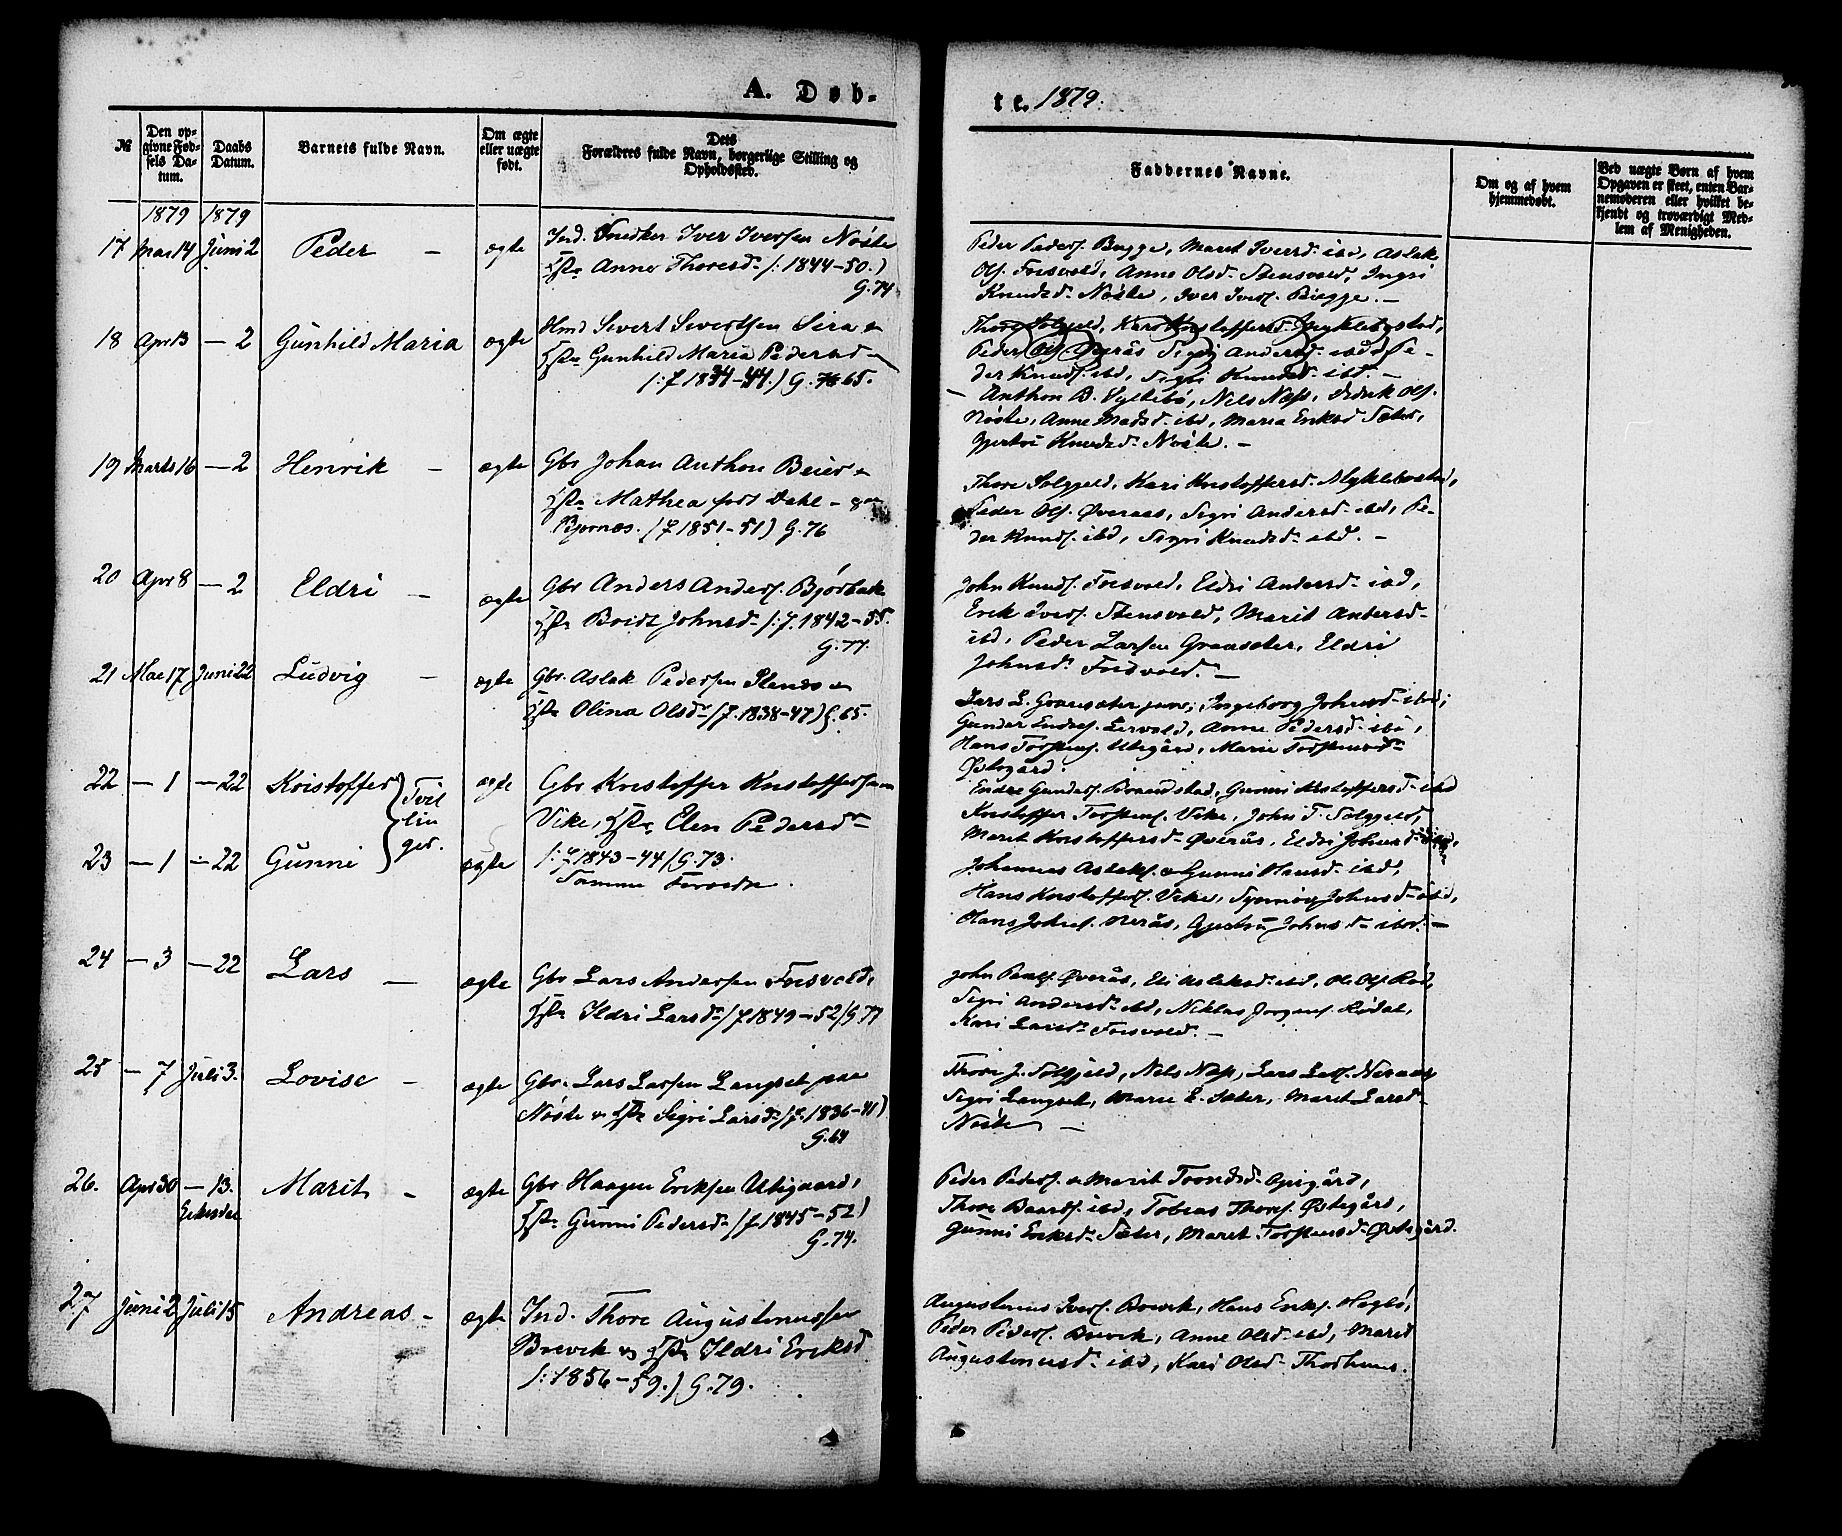 A. Døb-
te. 1879.
№
Den opgivne Fødsels Datum.
Daabs Datum.
Barnets fulde Navn.
Om ægte eller uægte født.
Dets Forældres fulde Navn, borgerlige Stilling og Opholdssted.
Faddernes Navne.
Om og af hvem hjemmedøbt.
Ved uægte Børn af hvem Opgaven er skeet, enten Barnemoderen eller hvilket bekjendt og troværdigt Medlem af Menigheden.
1879 1879
17 Mai 14 Juni 2 Peder – ægte
Ind. Snedker Iver Iversen Nøste
Hst. Anne Thoresd. /: 1844–50.)
G. 74
Peder Peders. Bugge, Marit Iversd. ibd, Aslak
Ols. Forsvold, Anne Olsd. Stensvold, Ingri
Knudsd. Nøste, Iver Ivers. Bugge. –
18 Apr 13 – 2 Gunhild Maria ægte
Hmd Sivert Sivertsen Sira
Hst. Gunhild Maria Pedersd
/: f 1834–44.) G. 65.
Thore Solgjeld, Kari Kristoffersd. Myklebostad,
Peder Ols. Øverås Sigri Andersd. ibd, Pe-
der Knuds. ibd, Sigri Knudsd. ibd. –
– Anthon B. Syltebø, Nils Næss, Ols.
Nøste, Anne Madsd. ibd, Maria Eriksd Sæter,
Gjertri Knudsd. Nøste. –
19 Marts 16 – 2 Henrik – ægte
Gbr Johan Anthon Beier
Hst. Mathea født Dahl –
/f 1851–51) G. 76
Thore Solgjeld, Kari Kristoffersd. Myklebostad,
Peder Ols. Øveraas, Sigri Andersd. ibd, Pe-
der Knuds. ibd, Sigri Knudsd. ibd. –
20 Apr 8 – 2 Eldri – ægte
Gbr Anders Anders. Bjørbak
Hst. Johnsd. /: f. 1842–55.
G. 77.
John Knuds. Forsvold, Eldri Andersd. ibd,
Erik Ivers. Stensvold, Marit Andersd.
ibd, Peder Larsen Granseter, Eldri
Johnsd. Forsvold. –
21 Mai 17 Juni 22 Ludvig – ægte
Gbr. Aslak Pedersen
Hst. Olina Olsdr /f. 1838–47) G. 65.
Lars L. Granseter, Ingeborg Johnsd. ibd,
Gunder Endres. Lervold, Anne Pedersd. ibd,
Hans Torstens. Utigård, Marie Torstensd.
Østegård.
22 – 1 – 22 Kristoffer ægte
Tvil
lin
ger.
Gbr Kristoffer Kristoffersen
Vike, Hst. Elen Pedersdr
Endre Gunders. Brandstad, Gunni Kristoffersd. ibd
Kristoffer Torstens. Vike, John T. Solgjeld,
Marit Kristoffersd. Øverås, Eldri Johnsd.
23 – 1 – 22 Gunni ægte
/: f 1843–44/ G. 73.
Samme Forældre.
Johannes Aslaks. Gunni Hansd. ibd,
Hans Kristoffers. Vike, Johnsd. ibd,
Hans Johns. Nerås, Gjertru Johnsd. ibd. –
24 – 3 – 22 Lars – ægte
Gbr Lars Andersen Forsvold,
Hst. Ildri Larsdr. /f 1849–52/ G 77
John Øverås, Eli Aslaksd. ibd, Ole Ols. Rød,
Sigri Andersd. ibd, Niklas Jørgens. Rødal,
Kari Larsd. Forsvold. –
25 – 7 Juli 3. Lovise – ægte
Gbr. Lars Larsen Langset paa
Nøste Hst. Sigri Larsd. /f. 1836–41)
G. 64
Thore J. Solgjeld, Nils Næss, Lars Lars. Neraas
Sigri Langset, Marie E. Sæter, Marit Larsd.
Nøste –
26. Apr 30 – 13. Marit – ægte
Gbr Haagen Eriksen Utigaard,
Hst. Gunni Pedersd. /f 1845–52)
G. 74.
Peder Peders. Marit Trondsd. Opigård,
Thore Baards. ibd, Tobias Thores. Østegård,
Gunni Eriksd. Sæter, Marit Torstensd. Østegård.
27 Juni 2 Juli 15 Andreas – ægte
Ind. Thore Augustinussen
Brevik Hst. Ildri Eriksd
/: 1856–59.) G. 79.
Augustinus Ivers. Brevik, Hans Eriks. Hagbø,
Peder Peders. Brevik, Anne Olsd. ibd, Marit
Augustinusd. ibd, Kari Olsd.